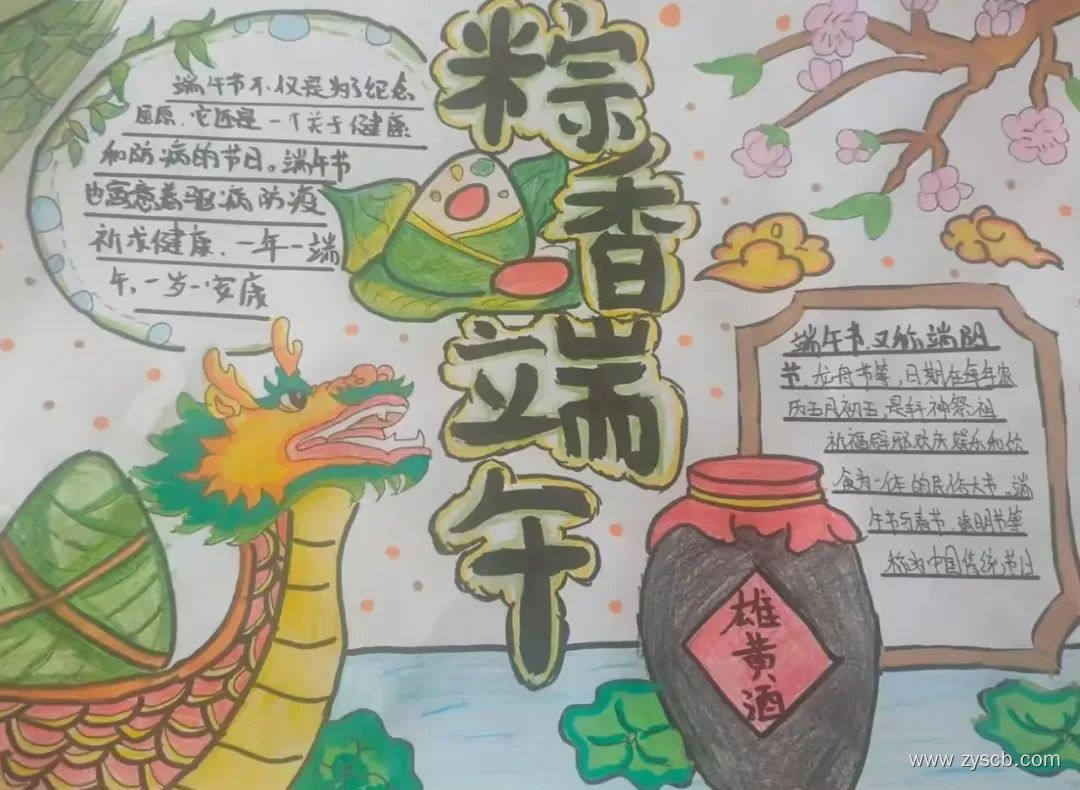 粽香端午
端午节不仅是为了纪念
屈原、它还是一个关于健康
和防病的节日。端午节
也寓意着驱病防疫
祈求健康、一年一端
午,一岁一安康
端午节又称端阳
节、龙舟节等,日期在每年农
历五月初五,是拜神祭祖
祈福辟邪欢庆娱乐和饮
食为一体的民俗大节。端
午节与春节、清明节等
称为中国传统节日
雄黄酒
www.zyscb.com